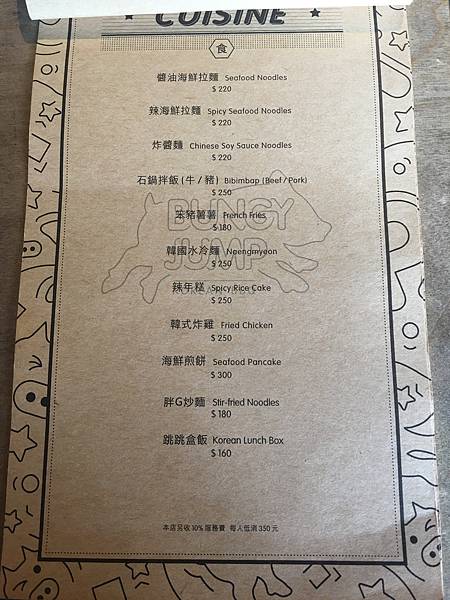 CUISINE
食
醬油海鮮拉麵 Seafood Noodles
$ 220
辣海鮮拉麵 Spicy Seafood Noodles
$ 220
炸醬麵 Chinese Soy Sauce Noodles
$ 220
石鍋拌飯 ( 牛 / 豬 ) Bibimbap (Beef / Pork)
$ 250
笨豬薯薯 French Fries
$ 180
韓國水冷麵 Naengmyeon
$ 250
辣年糕 Spicy Rice Cake
$ 250
韓式炸雞 Fried Chicken
$ 250
海鮮煎餅 Seafood Pancake
$ 300
胖G炒麵 Stir-fried Noodles
$ 180
跳跳盒飯 Korean Lunch Box
$ 160
BUNGY
JUMP
KOREAN BBQ
本店另收10% 服務費 每人低消350元